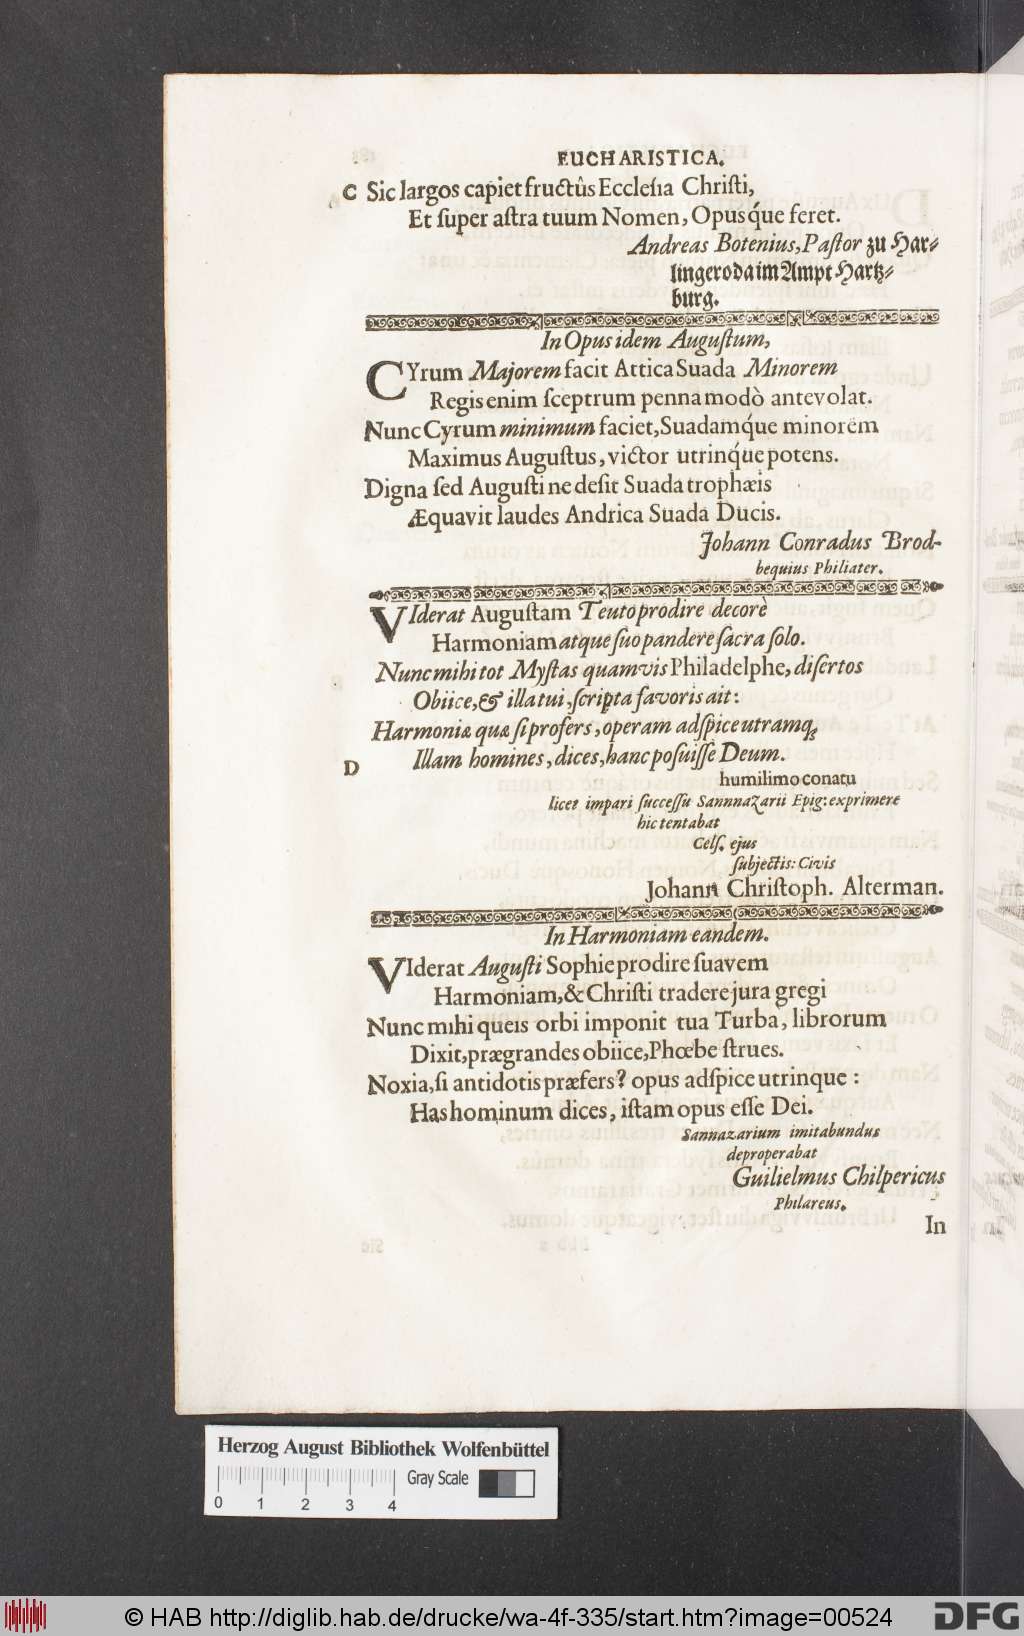 EUCHARISTICA.
C Sic largos capiet fructûs Ecclesia Christi,
Et super astra tuum Nomen, Opusq́ue feret.
Andreas Botenius, Pastor zu Har-
lingeroda im Ampt Hartz-
burg.
In Opus idem Augustum,
CYrum Majorem facit Attica Suada Minorem
Regis enim sceptrum penna modò antevolat.
Nunc Cyrum minimum faciet, Suadamq́ue minorem
Maximus Augustus, victor utrinq́ue potens.
Digna sed Augusti ne desit Suada trophæis
Æquavit laudes Andrica Suada Ducis.
Johann Conradus Brod-
bequius Philiater.
VIderat Augustam Teuto prodire decorè
Harmoniam atque suo pandere sacra solo.
Nunc mihi tot Mystas quamvis Philadelphe, disertos
Obiice, & illa tui, scripta favoris ait:
Harmoniæ quæ si profers, operam adspice utramq;
D Illam homines, dices, hanc posuisse Deum.
humilimo conatu
licet impari successu Sannnazarii Epig: exprimere
hic tentabat
Cels. ejus
subjectis: Civis
Johann Christoph. Alterman.
In Harmoniam eandem.
VIderat Augusti Sophie prodire suavem
Harmoniam, & Christi tradere jura gregi
Nunc mihi queis orbi imponit tua Turba, librorum
Dixit, prægrandes obiice, Phœbe strues.
Noxia, si antidotis præfers? opus adspice utrinque:
Has hominum dices, istam opus esse Dei.
Sannazarium imitabundus
deproperabat
Guilielmus Chilpericus
Philareus.
In
Herzog August Bibliothek Wolfenbüttel
Gray Scale
0 1 2 3 4
© HAB http://diglib.hab.de/drucke/wa-4f-335/start.htm?image=00524
DFG